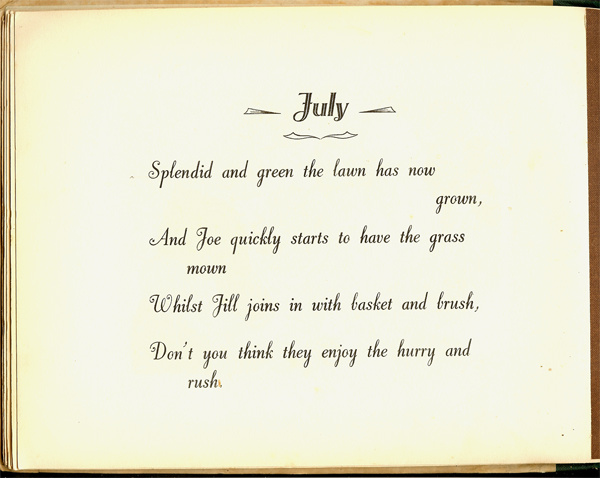 July
Splendid and green the lawn has now
grown,
And Joe quickly starts to have the grass
mown
Whilst Jill joins in with basket and brush,
Don't you think they enjoy the hurry and
rush.